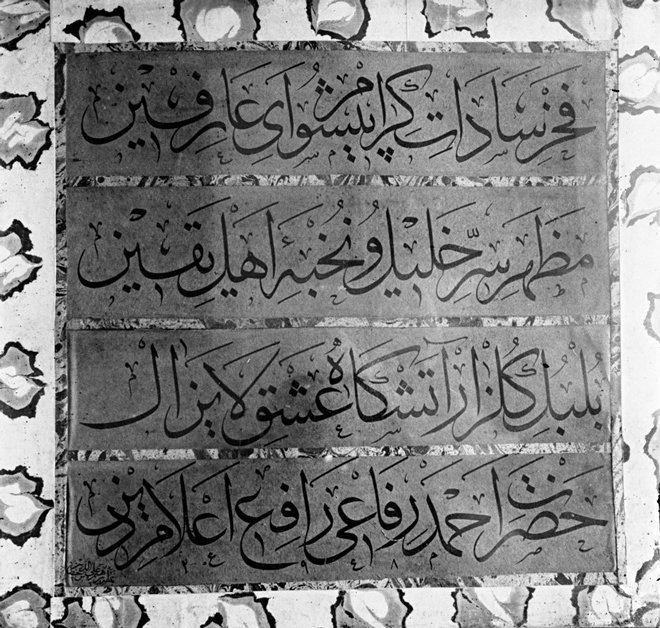 فخر سادات كرام پیشوای عارفین
مظهر سرّ خلیل و نخبهٔ اهل یقین
بلبل كلزار آتشكاه عشق لا یزال
حضرت احمد رفاعی رافع اعلام دین